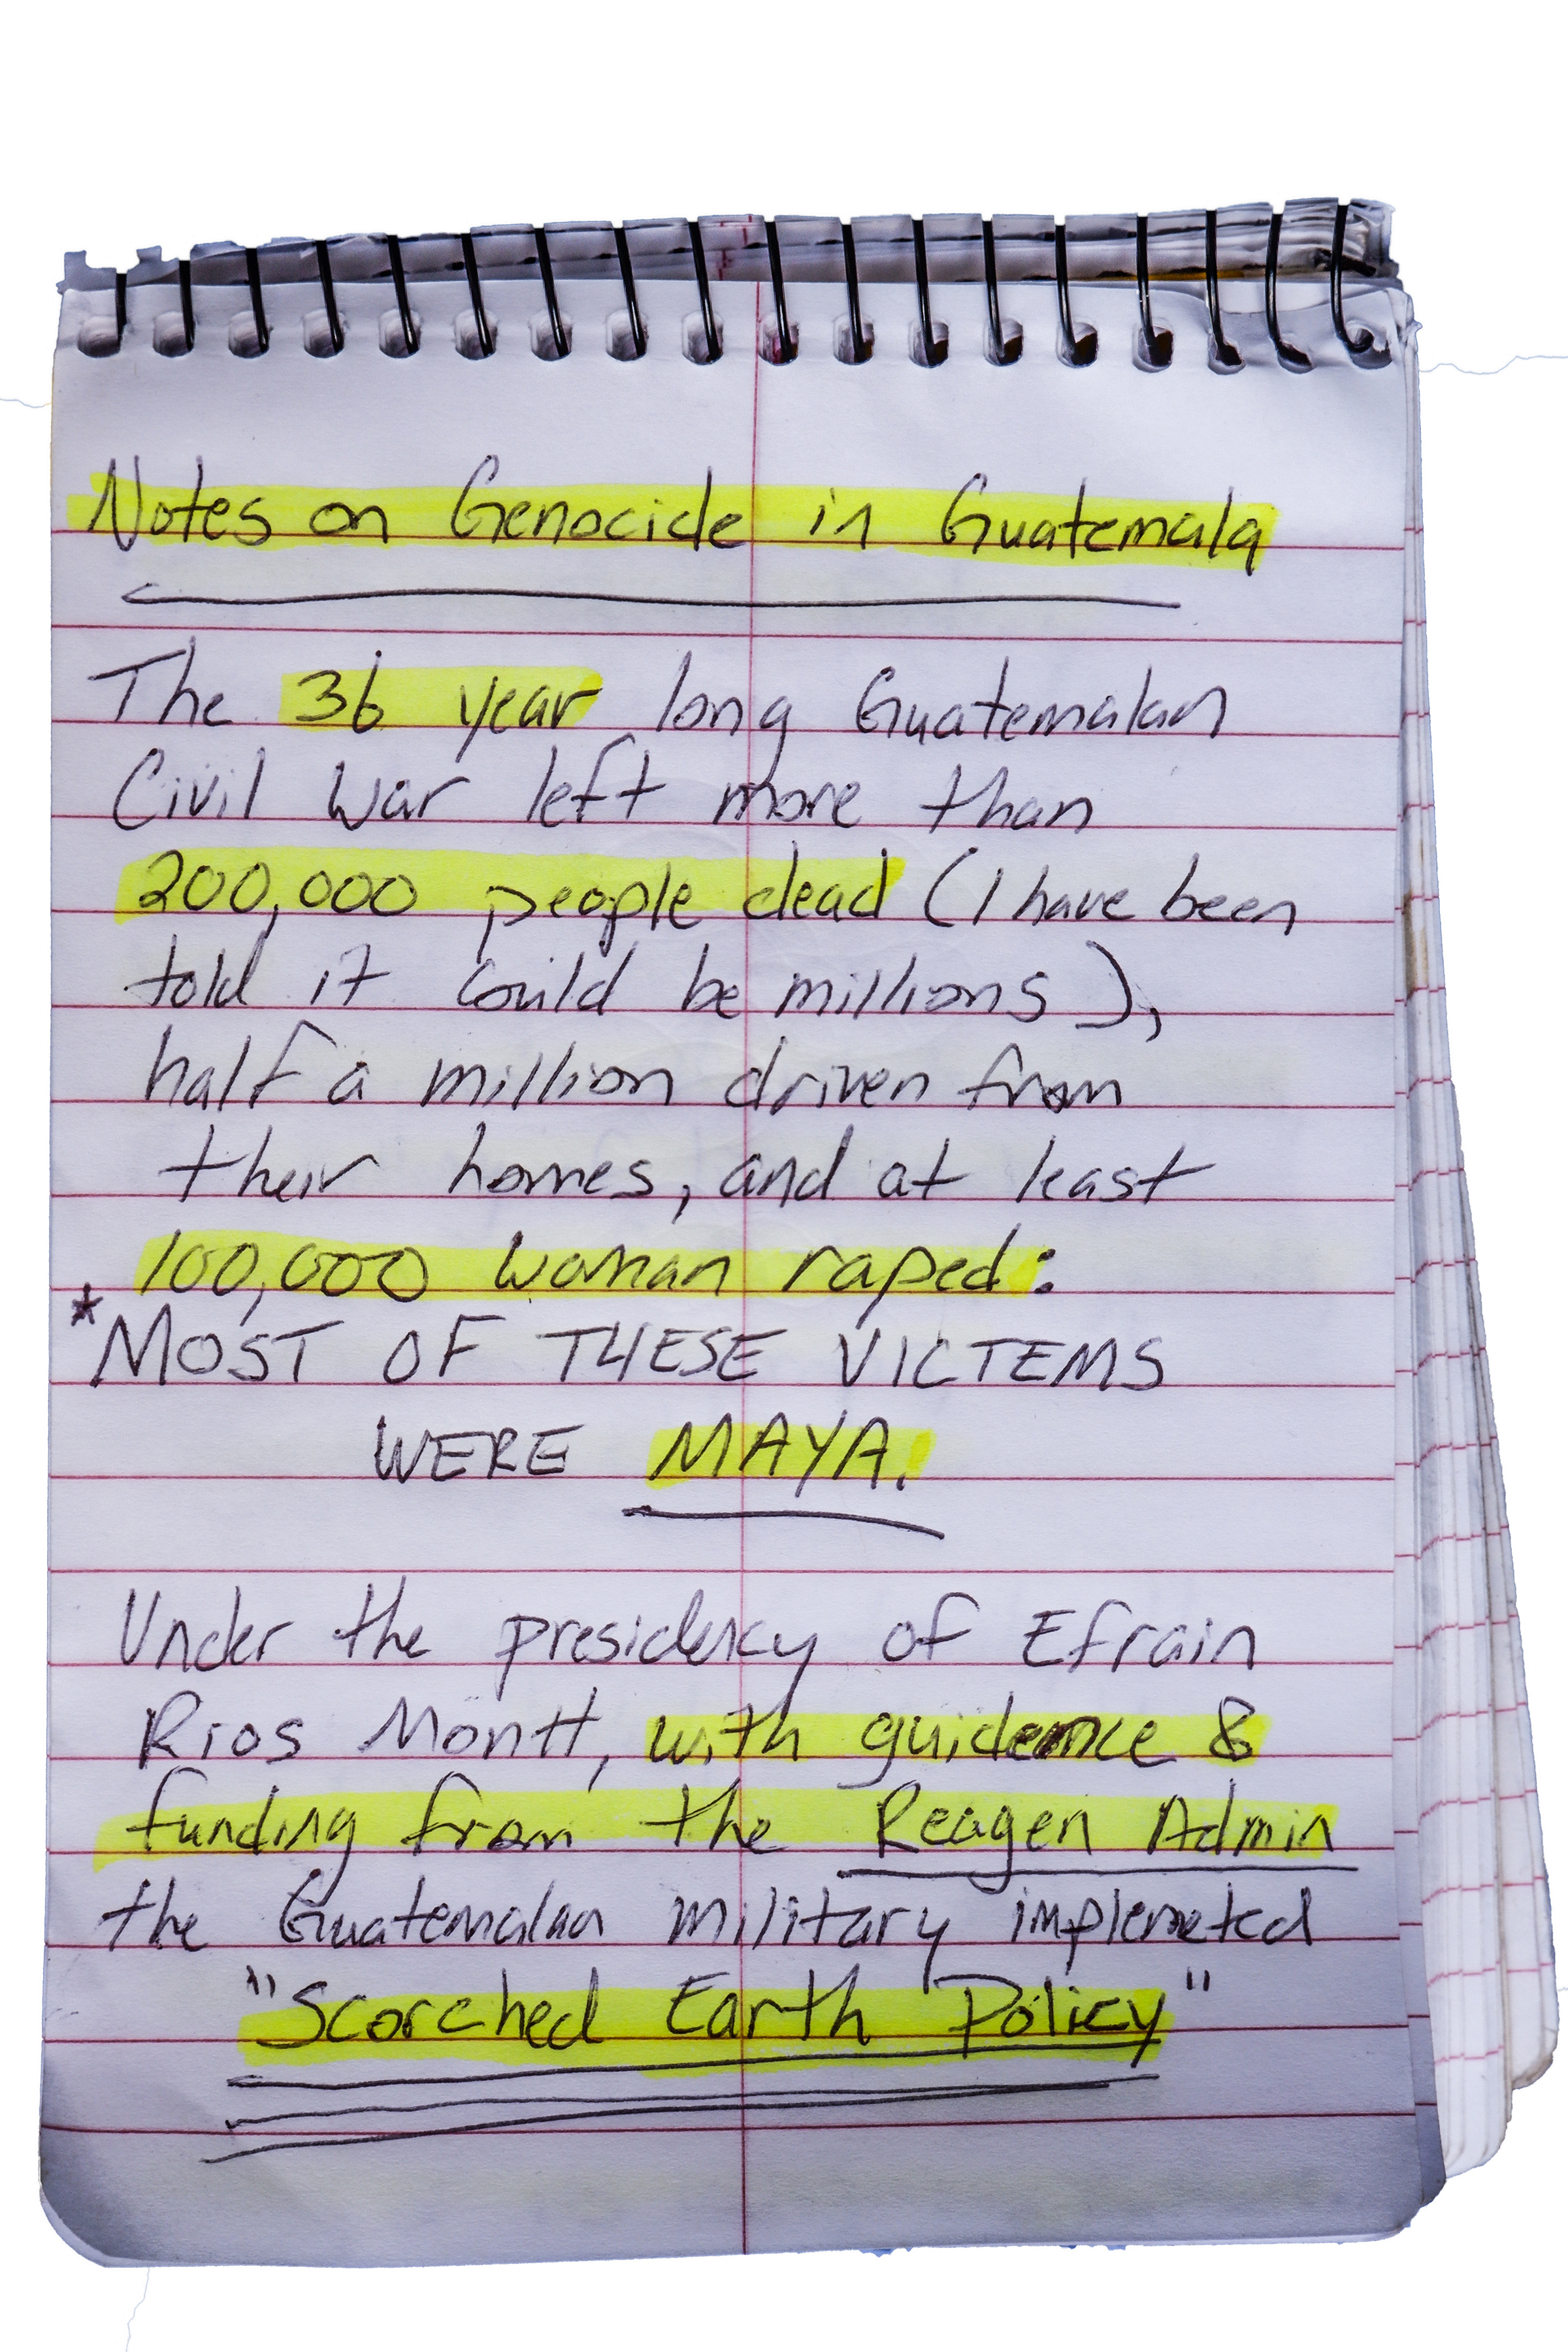 Notes on Genocide in Guatemala
The 36 year long Guatemalan
Civil War left more than
200,000 people dead (I have been
told it could be millions),
half a million driven from
their homes, and at least
100,000 woman raped:
*MOST OF THESE VICTEMS
WERE MAYA.
Under the presidency of Efrain
Rios Montt, with guidence &
funding from the Reagen Admin
the Guatemalan military implemeted
"Scorched Earth Policy"